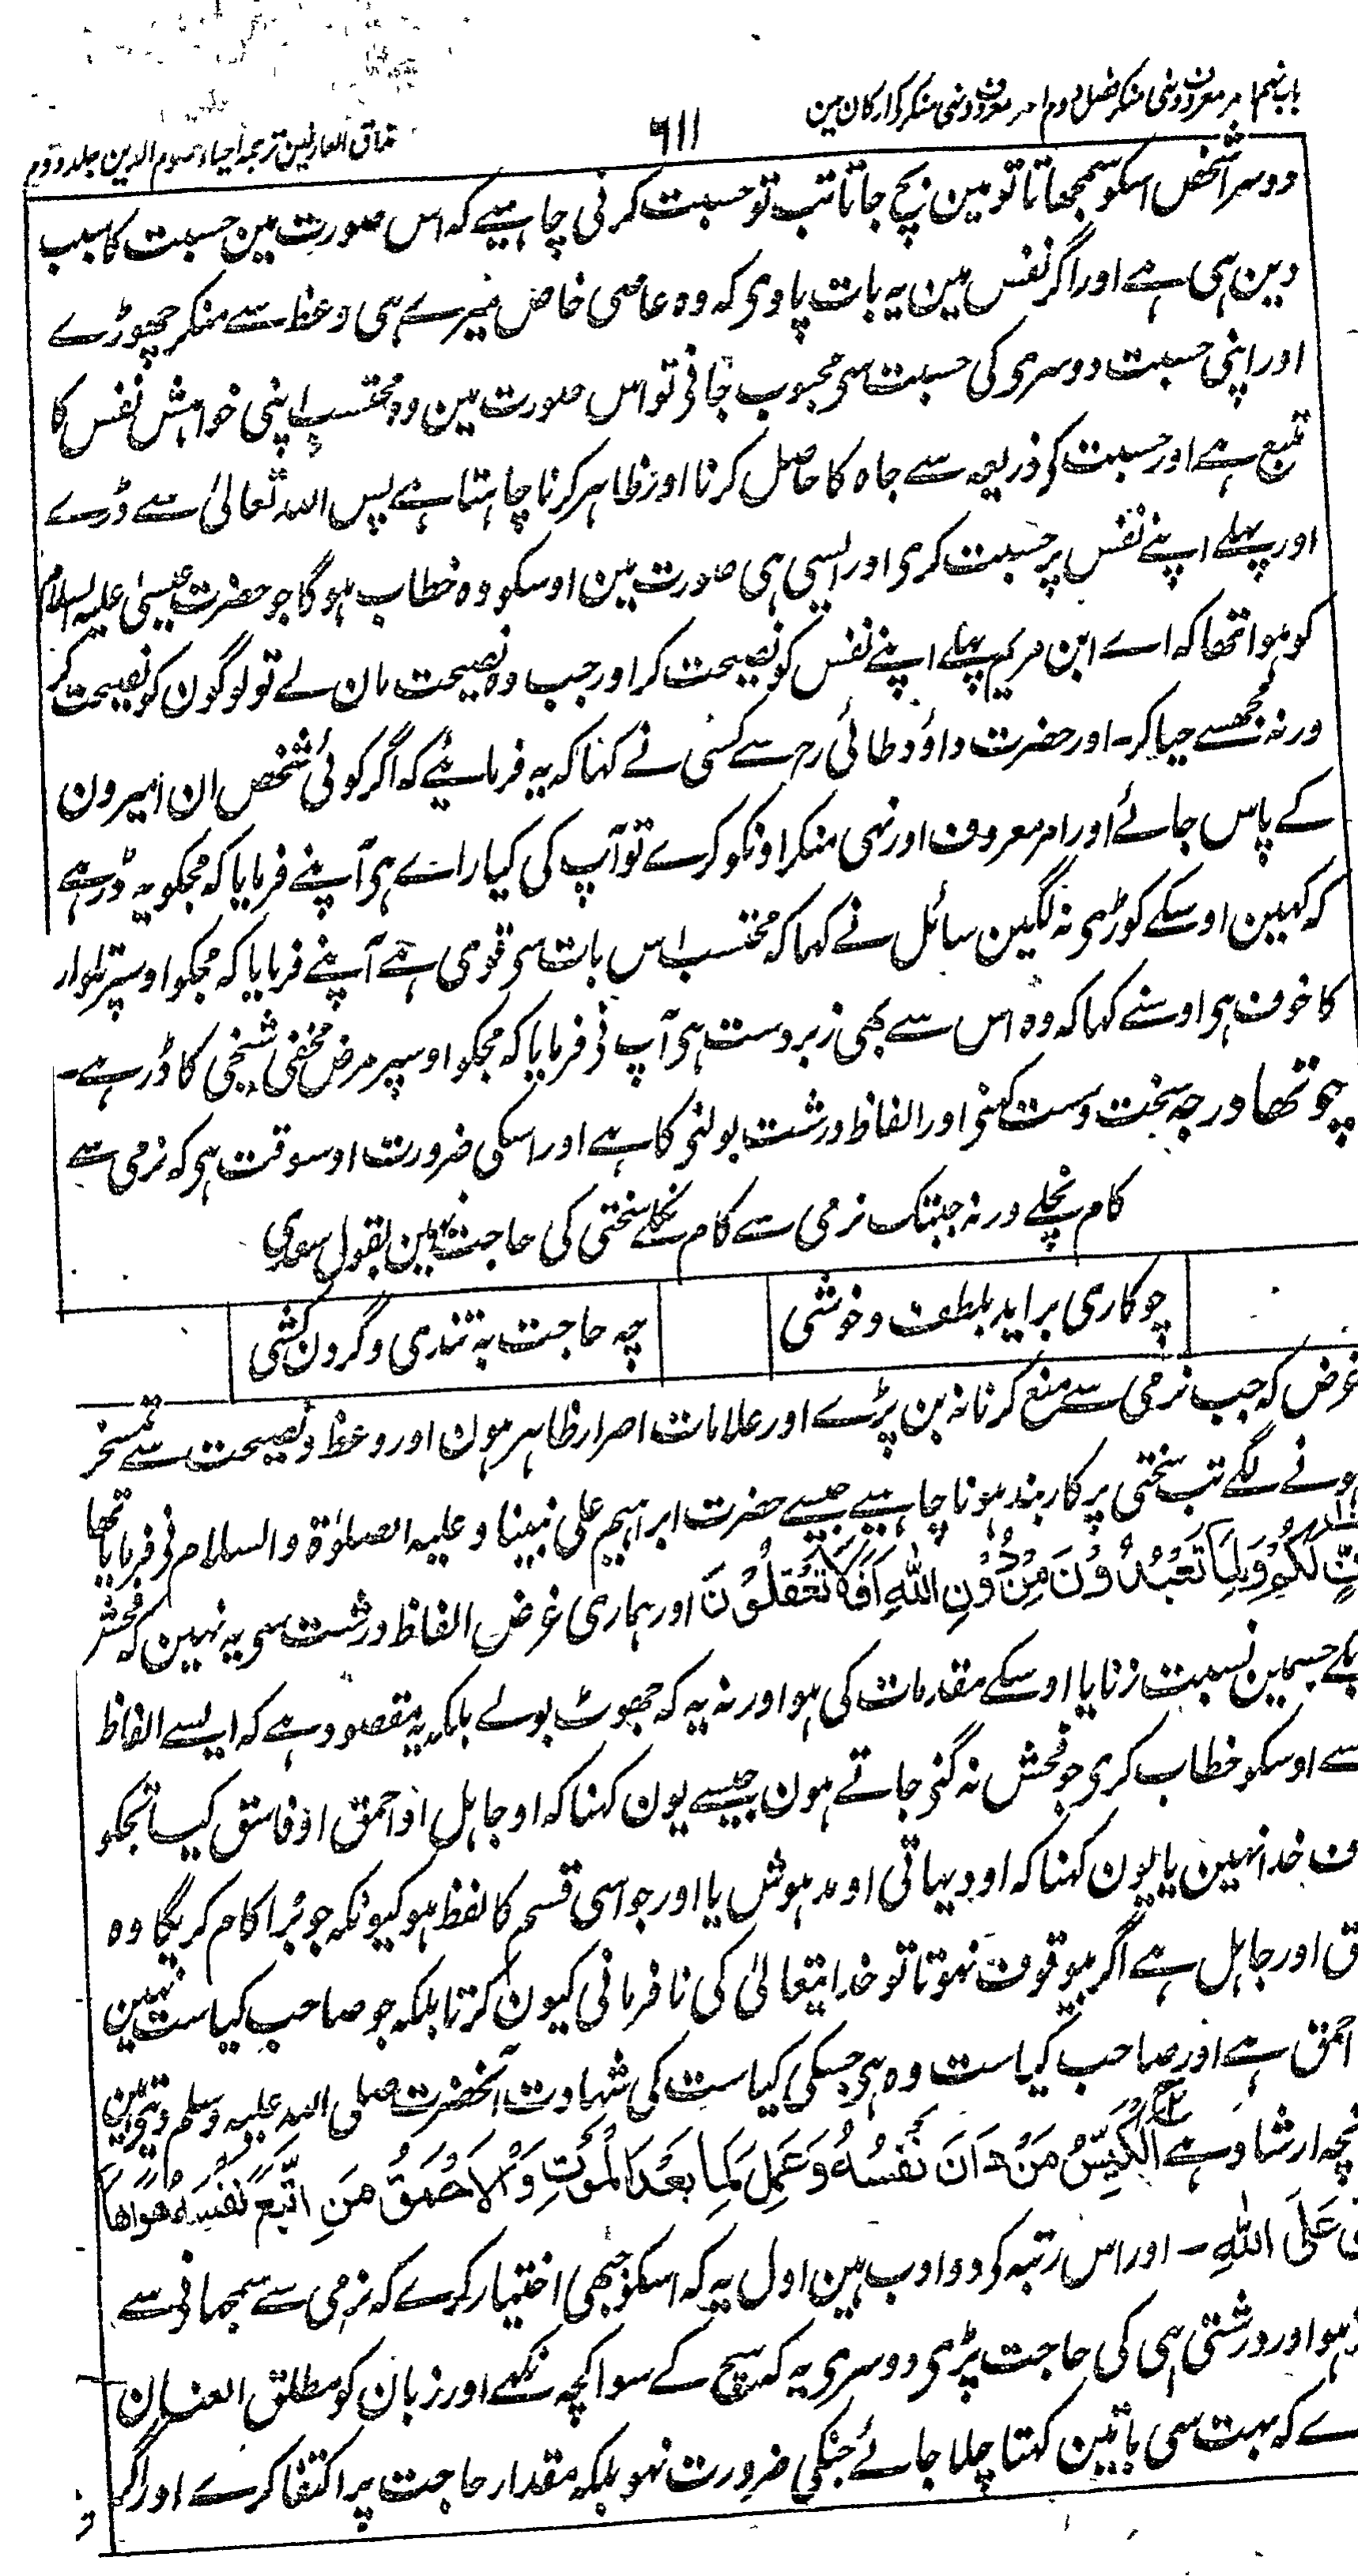 باب نہم امر معروف ونہی منکر فصل دوم امر معروف ونہی منکر کو ارکان مین
۶۱۱
مذاق العارفین ترجمہ احیاء علوم الدین جلد دوم
دوسرا شخص اسکو سمجھاتا تو مین بچ جاتا تب تو حسبت کرنی چاہیے کہ اس صورت مین حسبت کا سبب
دین ہی ہے اور اگر نفس مین یہ بات پاوی کہ وہ عاصی خاص میرے ہی وعظ سے منکر چھوڑے
اور اپنی حسبت دوسری کی حسبت سی محبوب جانی تو اس صورت مین وہ محتسب اپنی خواہش نفس کا
متبع ہے اور حسبت کو ذریعہ سے جاہ کا حاصل کرنا اور ظاہر کرنا چاہتا ہے پس اللہ تعالیٰ سے ڈرے
اور پہلے اپنے نفس پر حسبت کری اور ایسی ہی صورت مین اوسکو وہ خطاب ہوگا جو حضرت عیسیٰ علیہ السلام
کو ہوا تھا کہ اے ابن مریم پہلے اپنے نفس کو نصیحت کر اور جب وہ نصیحت مان لے تو لوگون کو نصیحت کر
ورنہ مجھسے حیا کر۔ اور حضرت داؤد طائی رح سے کسی نے کہا کہ یہ فرمائیے کہ اگر کوئی شخص ان امیرون
کے پاس جائے اور امر معروف اور نہی منکر اونکو کرے تو آپ کی کیا راے ہی آپنے فرمایا کہ مجکو یہ ڈر ہے
کہ کہین اوسکے کوڑی نہ لگین سائل نے کہا کہ محتسب اس بات سی قوی ہے آپنے فرمایا کہ مجکو اوسپر تلوار
کا خوف ہی اوسنے کہا کہ وہ اس سے بھی زبردست ہی آپ نی فرمایا کہ مجکو اوسپر مرض مخفی شیخی کا ڈر ہے۔
چوتھا درجہ سخت وسست کہنی اور الفاظ درشت بولنی کا ہے اور اسکی ضرورت اوسوقت ہی کہ نرمی سے
کام نچلے ورنہ جبتک نرمی سے کام نکلے سختی کی حاجت نہین بقول سعدی
چو کاری براید بلطف وخوشی
چہ حاجت بہ تندی وگردن کشی
غرض کہ جب نرمی سے منع کرنا نہ بن پڑے اور علامات اصرار ظاہر ہون اور وعظ ونصیحت سے تمسخر
ہونے لگے تب سختی پر کاربند ہونا چاہیے جیسے حضرت ابراہیم علی نبینا وعلیہ الصلوٰۃ والسلام نی فرمایا تھا
فٍّ لَكُمْ وَلِمَا تَعْبُدُوْنَ مِنْ دُوْنِ اللّٰهِ اَفَلَا تَعْقِلُوْنَ اور ہماری غرض الفاظ درشت سی یہ نہین کہ فحش
بکے جسمین نسبت زنا یا اوسکے مقدمات کی ہو اور نہ یہ کہ جھوٹ بولے بلکہ یہ مقصود ہے کہ ایسے الفاظ
سے اوسکو خطاب کری جو فحش نہ گنی جاتے ہون جیسے یون کہنا کہ او جاہل او احمق او فاسق کیا تجکو
ف خدا نہین یا یون کہنا کہ او دیہاتی او مدہوش یا اور جو اسی قسم کا لفظ ہو کیونکہ جو برا کام کریگا وہ
ق اور جاہل ہے اگر بیوقوف نہوتا تو خدا یتعالیٰ کی نافرمانی کیون کرتا بلکہ جو صاحب کیاست نہین
احمق ہے اور صاحب کیاست وہ ہی جسکی کیاست کی شہادت آنحضرت صلی اللہ علیہ وسلم دیتی ہین
نچہ ارشاد ہے اَلْكَيِّسُ مَنْ دَانَ نَفْسَهُ وَعَمِلَ لِمَا بَعْدَ الْمَوْتِ وَالْاَحْمَقُ مَنِ اتَّبَعَ نَفْسَهُ هَوَاهَا
عَلَى اللّٰهِ ۔ اور اس رتبہ کو دو ادب ہین اول یہ کہ اسکو جبھی اختیار کرے کہ نرمی سے سمجھانی سے
ہو اور درشتی ہی کی حاجت پڑی دوسری یہ کہ سچ کے سوا کچہ نکہے اور زبان کو مطلق العنان
ے کہ بہت سی باتین کہتا چلا جائے جنکی ضرورت نہو بلکہ مقدار حاجت پر اکتفا کرے اور اگر